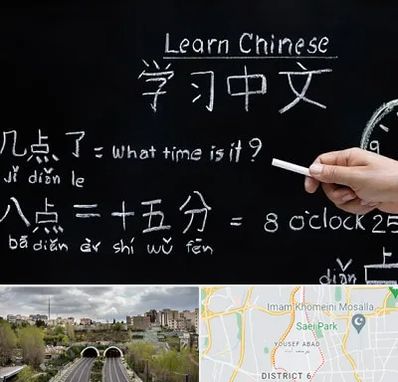 Learn Chinese
学习中文
几点了 = What time is it?
jǐ diǎn le
八点二十五分 = 8 o'clock 25
bā diǎn èr shí wǔ fēn
diǎn
9
Imam Khomeini Mosalla
Saei Park
YOUSEF ABAD
DISTRICT 6